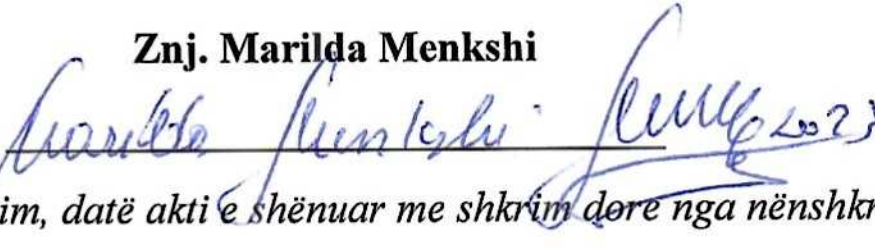 Znj. Marilda Menkshi
Marilda Menkshi 2023
im, datë akti e shënuar me shkrim dore nga nënshkr